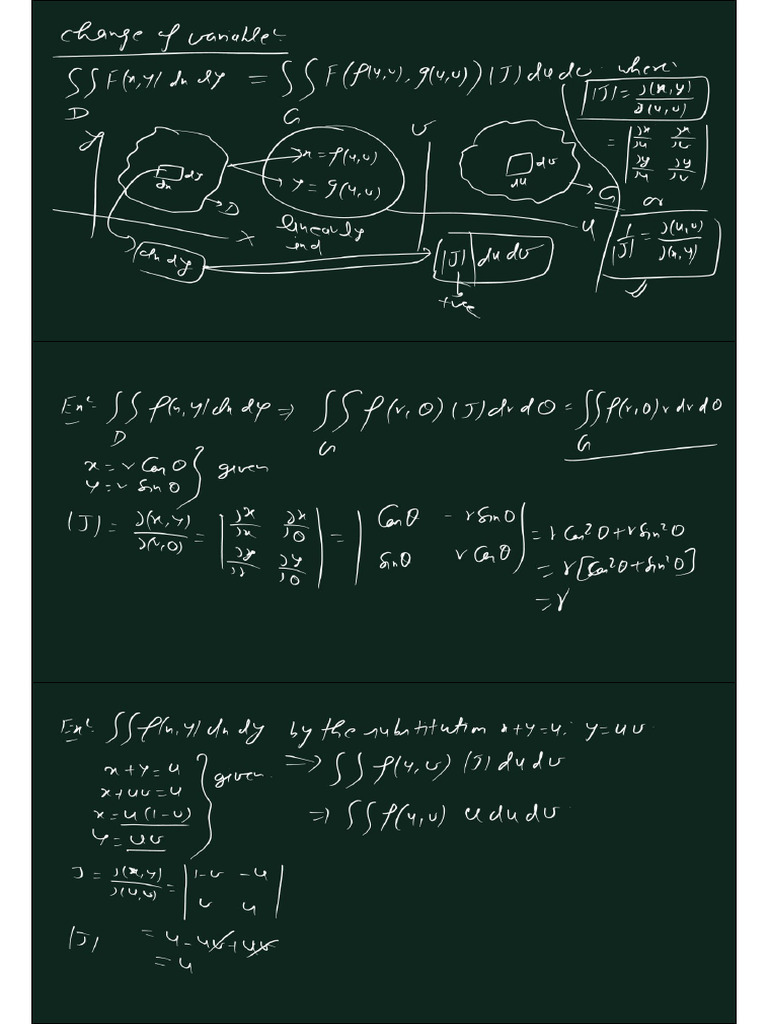 change of variable:
∫∫ F(x,y) dx dy = ∫∫ F(f(u,v), g(u,v)) |J| du dv. where:
D G
|J| = ∂(x,y)/∂(u,v)
= | ∂x/∂u ∂x/∂v |
| ∂y/∂u ∂y/∂v |
or
1/|J| = ∂(u,v)/∂(x,y)
y
dx dy
D
x
x = f(u,v)
y = g(u,v)
linearly
ind
v
du dv
G
u
dx dy
|J| du dv
+ve
Ex: ∫∫ f(x,y) dx dy ⇒ ∫∫ f(r,θ) |J| dr dθ = ∫∫ f(r,θ) r dr dθ
D G G
x = r Cos θ
y = r Sin θ } given
|J| = ∂(x,y)/∂(r,θ) = | ∂x/∂r ∂x/∂θ | = | Cosθ - r Sinθ | = r Cos²θ + r Sin²θ
| ∂y/∂r ∂y/∂θ | | Sinθ r Cosθ | = r[Cos²θ + Sin²θ]
= r
Ex: ∫∫ f(x,y) dx dy by the substitution x+y=u, y=uv.
x+y=u
x+uv=u
x=u(1-v)
y=uv } given
⇒ ∫∫ f(u,v) |J| du dv
⇒ ∫∫ f(u,v) u du dv
J = ∂(x,y)/∂(u,v) = | 1-v -u |
| v u |
|J| = u - uv + uv
= u